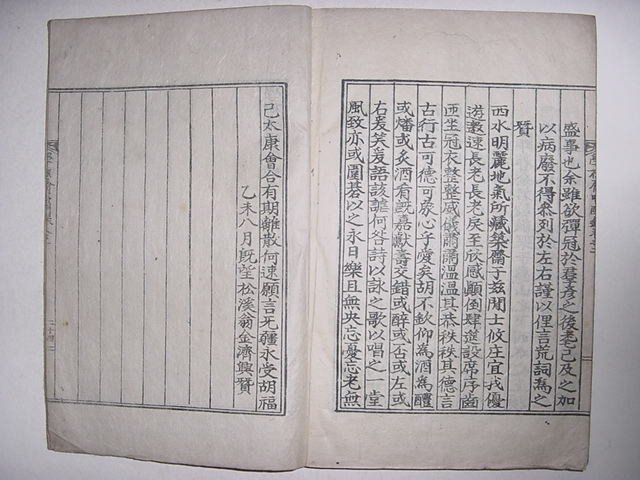 盛事也余雖欲彈冠於君彦之後耄已及之加
以病廢不得參列於左右謹以俚言荒詞爲之
贊
西水明麗地氣所藏築齋于茲閒士攸庄宜我優
遊載速長老長老戾至欣感顚倒肆筵設席序齒
而坐冠衣整整威儀肅肅溫溫其恭秩秩其德言
古行古可德可象心乎愛矣胡不欽仰爲酒爲醴
或燔或炙酒肴旣嘉獻壽交錯或醉或否或左或
右爰笑爰語該諧何咎詩以詠之歌以唱之一堂
風致亦或圍碁以之永日樂且無央忘憂忘老無
已太康會合有期離散何速願言无疆永受胡福
乙未八月旣望松溪翁金濟興贊